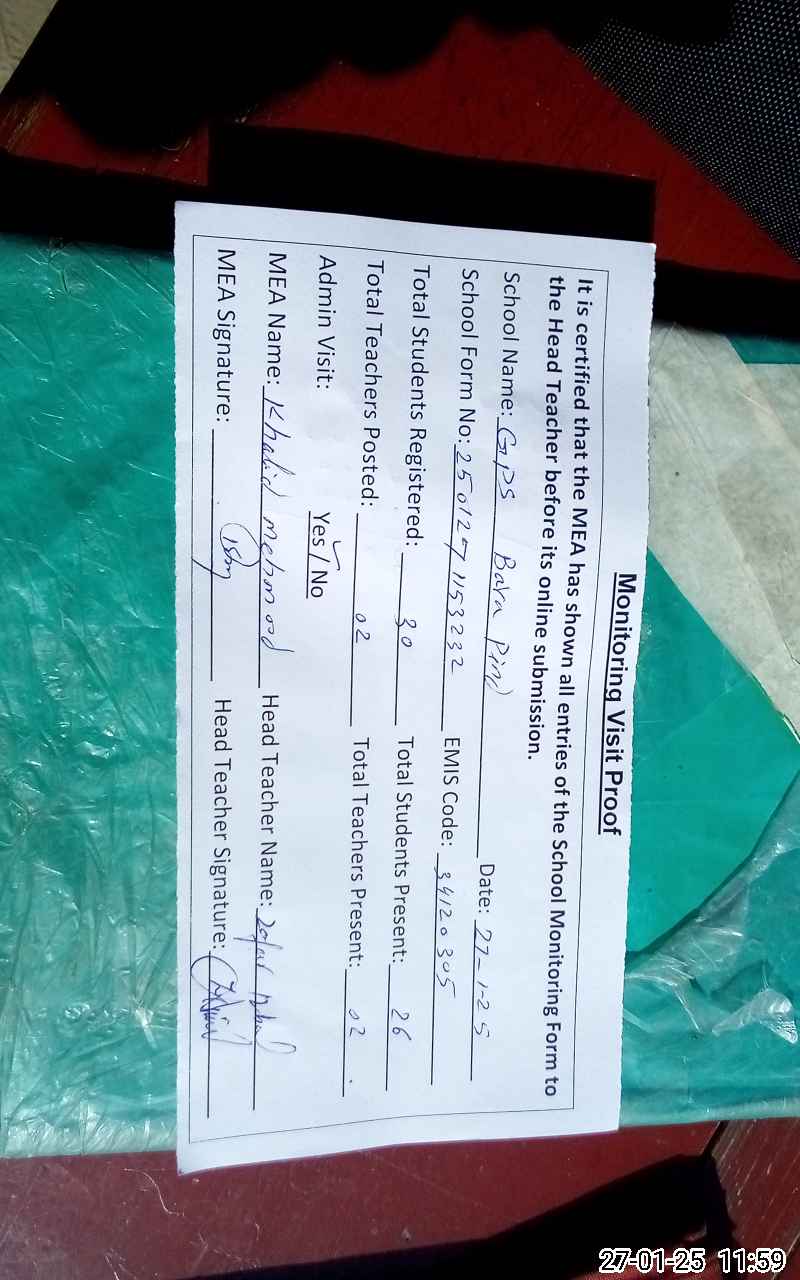 Monitoring Visit Proof
It is certified that the MEA has shown all entries of the School Monitoring Form to
the Head Teacher before its online submission.
School Name: GPS Bara Pind Date: 27-1-25
School Form No: 2501271153232 EMIS Code: 34120305
Total Students Registered: 30 Total Students Present: 26
Total Teachers Posted: 02 Total Teachers Present: 02
Admin Visit: Yes / No
MEA Name: Khalid mehmood Head Teacher Name: Zafar Iqbal
MEA Signature: Head Teacher Signature:
27-01-25 11:59